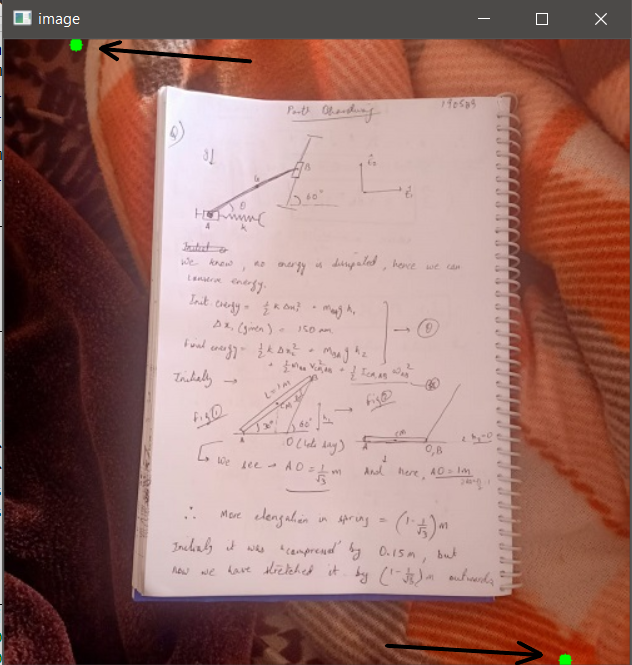 image
Parth Dhandwrng
190583
Q)
g↓
B
G
θ
60°
A
K
Ê₂
Ê₁
We know, no energy is dissipated, hence we can
conserve energy.
Init. energy = ½ k Δx₁² + m g h₁
Δx₁ (given) = 150 mm
Final energy = ½ k Δx₂² + m g h₂
+ ½ m V² + ½ I ω²
Initially →
L = 1m
B
Fig ①
CM
30°
60°
h₁
A
O (lets say)
Fig ②
CM
A
O, B
h₂ = 0
We see → AO = 1/√3 m And here, AO = 1m
∴ More elongation in spring = (1 - 1/√3) m
Initially it was "compressed" by 0.15m, but
now we have stretched it by (1 - 1/√3) m outwards